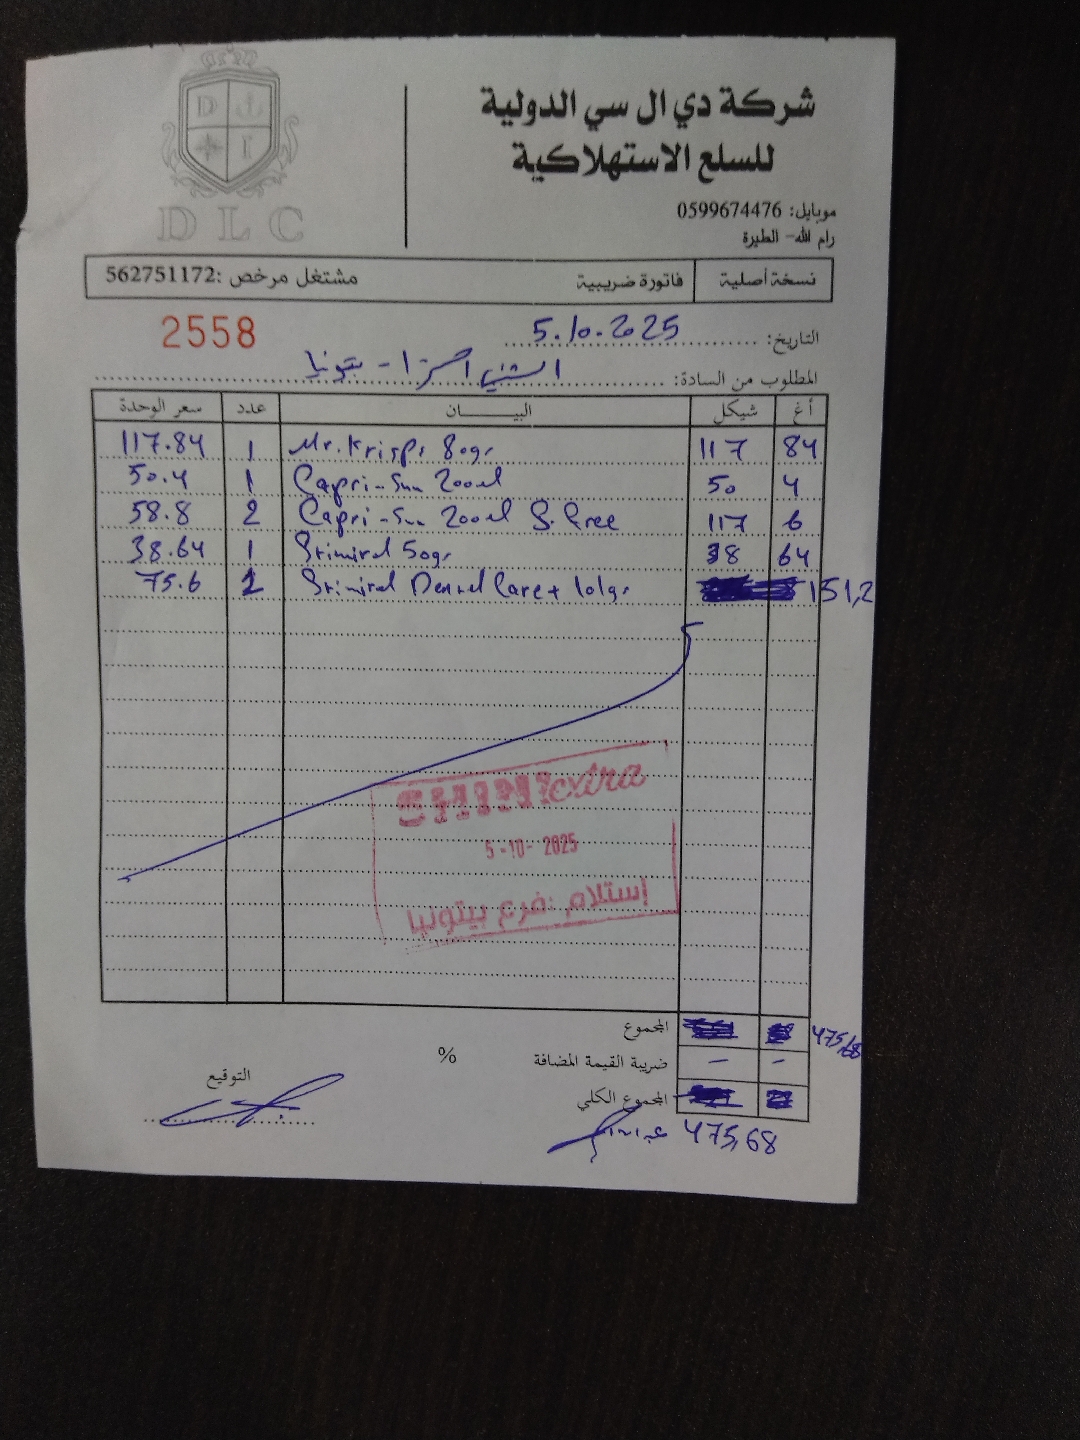 D L C
شركة دي ال سي الدولية
للسلع الاستهلاكية
موبايل: 0599674476
رام الله- الطيرة
نسخة أصلية فاتورة ضريبية مشتغل مرخص :562751172
2558
التاريخ: 5.10.2025
المطلوب من السادة: الشني اكسترا - بتونيا
أغ شيكل البيـــــان عدد سعر الوحدة
117.84 1 Mr. Krisps 80gr 117 84
50.4 1 Capri-Sun 200ml 50 4
58.8 2 Capri-Sun 200ml S. free 117 6
38.64 1 50gr 38 64
75.6 2 Dental Care+ 101gr 151,2
SHINI extra
5-10-2025
إستلام :فرع بيتونيا
المجموع 475,68
ضريبة القيمة المضافة % - -
المجموع الكلي
475,68
التوقيع